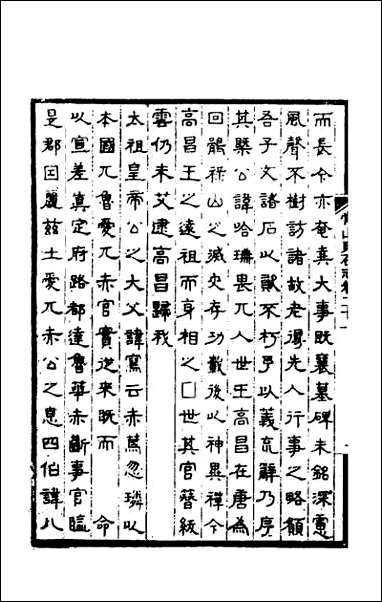 而長今亦奄真大事既襄墓碑未銘深慮
風聲不樹訪諸故老得先人行事之略願
吾子文諸石以猷不朽予以義宼辭乃序
其槩公諱哈璣畏兀人世王高昌在唐為
回鶻祿山之滅史存功載後以神異禪今
高昌王之遠祖而身相之□世其官簪紱
雲仍未艾逮高昌歸我
太祖皇帝公之大父諱寫云赤萬忽璘以
本國兀魯愛兀赤官實從來既而 命
以宣差真定府路都達魯華赤斷事官臨
是郡因麗茲土愛兀赤公之息四伯諱八